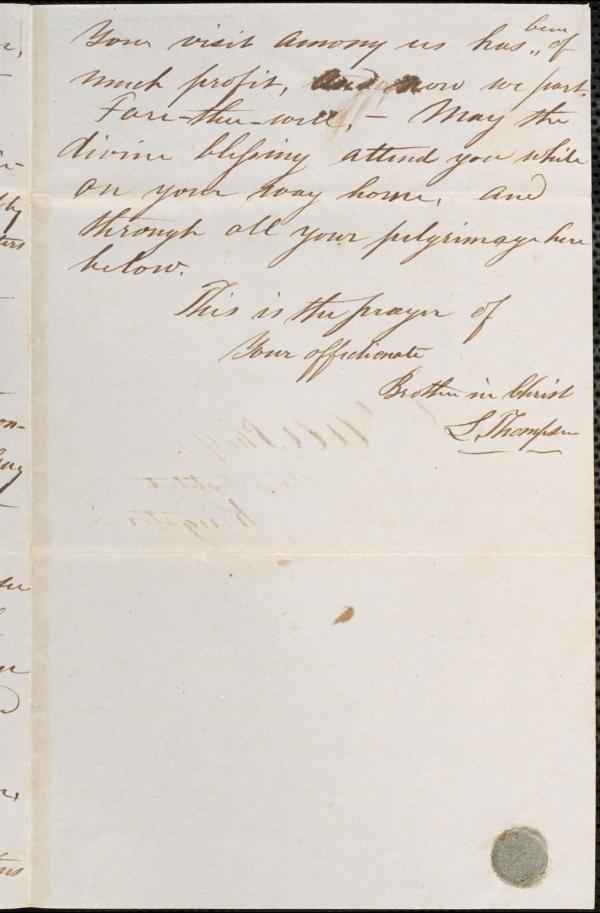 Your visit among us has been of
much profit, And now we part.
Fare-thee-well, - May the
divine blessing attend you while
on your way home, and
through all your pilgrimage here
below.
This is the prayer of
Your affectionate
Brother in Christ
L. Thompson